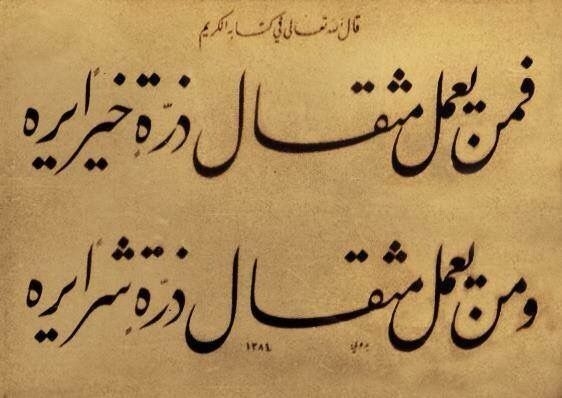 قال الله تعالى في كتابه الكريم
فمن يعمل مثقال ذرّةٍ خيرًا يره
ومن يعمل مثقال ذرّةٍ شرًا يره
١٣٨٤